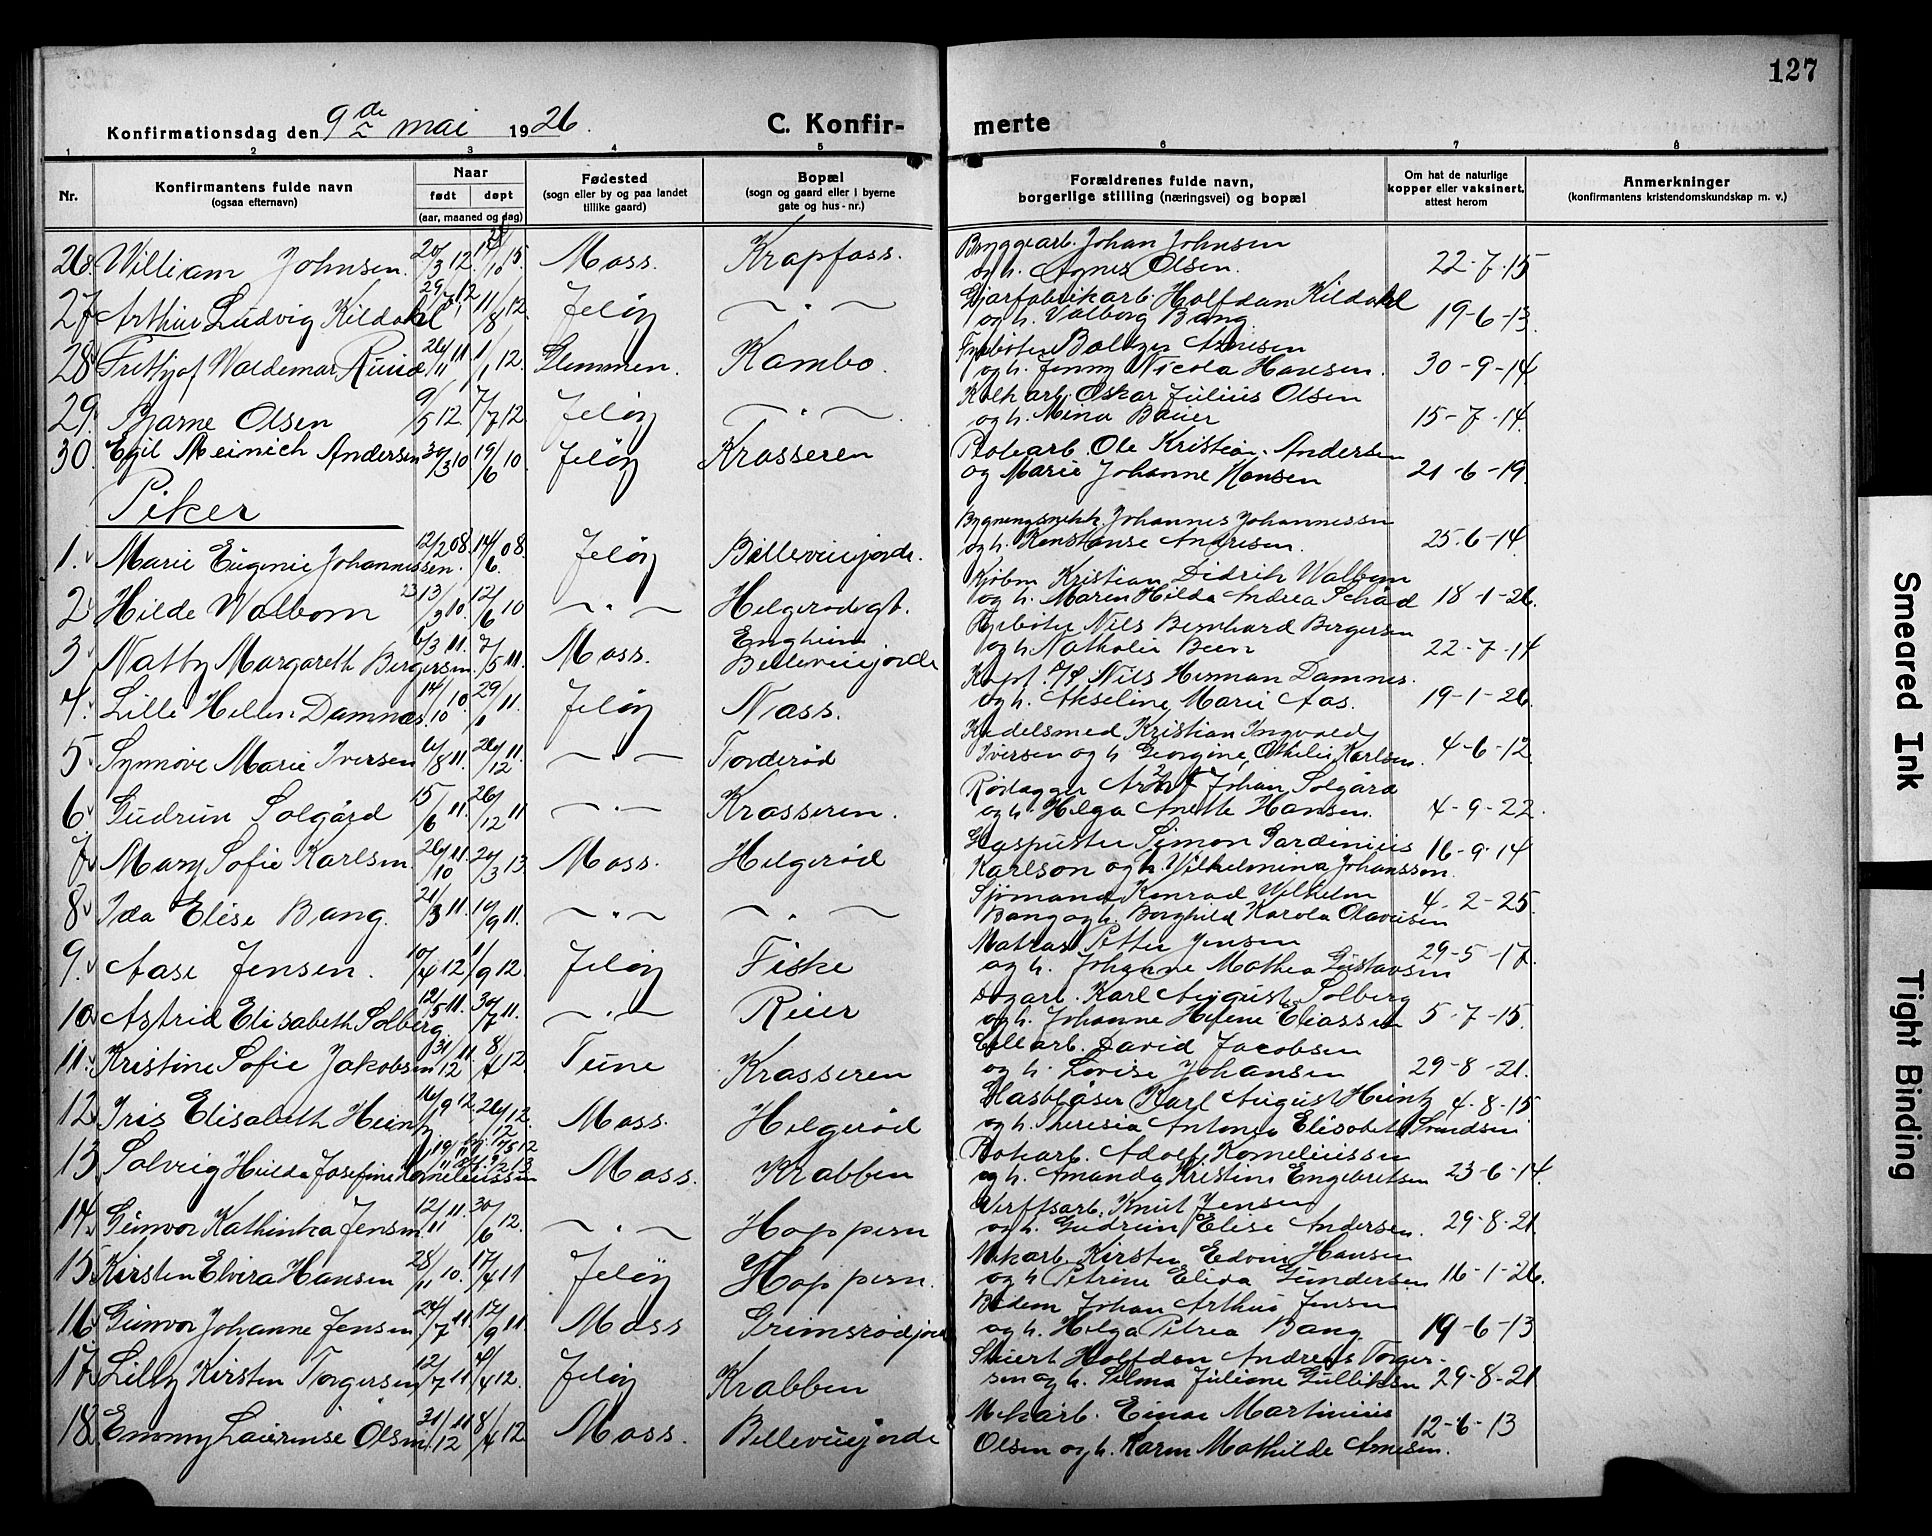 127
Konfirmationsdag den 9de mai 1926. C. Konfir- merte
1 2 3 4 5 6 7 8
Nr. Konfirmantens fulde navn (ogsaa efternavn) Naar født døpt (aar, maaned og dag) Fødested (sogn eller by og paa landet tillike gaard) Bopæl (sogn og gaard eller i byerne gate og hus-nr.) Forældrenes fulde navn, borgerlige stilling (næringsvei) og bopæl Om hat de naturlige kopper eller vaksinert, attest herom Anmerkninger (konfirmantens kristendomskundskap m. v.)
26. William Johnsen. 20/3 12. 17/10 15 Moss. Krapfoss. Bryggearb. Johan Johnsen
og h. Agnes Olsen. 22-7-15
27 Arthur Ludvig Kildahl 29/ 12 11/8 12. Jeløy — " — Halfdan Kildahl
og h. Valborg Bang 19-6-13
28 Frithjof Valdemar 26/11 11 1/1 12 Glemmen. Kambo. Fyrbøter Arnesen
og h. Jenny Nicola Hansen. 30-9-14
29. Bjarne Olsen 9/5 12. 7/7 12 Jeløy — " — Oskar Julius Olsen
og h. Mina Baier 15-7-14.
30. Egil Meinich Andersen 30/3 10 19/6 10 Jeløy Krasseren Ole Kristian Andersen
og Marie Johanne Hansen 21-6-19.
Piker
1. Marie Eugenie Johannessen. 12/2 08. 14/6 08. Jeløy Bellevuejorde. Bygningssnekk. Johannes Johannessen
og h. Konstanse Andresen. 25.6-14
2 Hilde Walbom 13/3 10. 12/6 10 — " — Helgerødgt. Kjøbm Kristian Didrik Walbom
og h. Maren Hilda Andrea Schåd 18-1-26.
3. Natty Margareth Bergersen 6/3 11. 7/5 11. Moss. Engheim
Bellevuejorde Fyrbøter Nils Bernhard Bergersen
og h Nathalie Been 22-7-14
4. Lille Hellen Damnæs. 14/10 10. 29/1 11. Jeløy Næss. Nils Herman Damnes.
og h. Akseline Marie Aas. 19-1-26.
5 Synnøve Marie Iversen 6/8 11. 26/12 11. — " — Torderød Kjedelsmed Kristian Ingvald
Iversen og h Georgine Othilie Karlsen. 4-6-12
6. Gudrun Solgård 15/6 11. 26/12 11 — " — Krasseren. Johan Solgård
og h. Helga Anette Hansen. 4-9-22.
7 Mary Sofie Karlsen 26/10 11. 24/3 13 Moss. Helgerød Glaspuster Simon Gardinius
Karlson og h. Vilhelmina Johansson. 16-9-14
8. Ida Elise Bang. 21/3 11. 10/9 11. — " — — " — Sjømand Konrad Vilhelm
Bang og h. Borghild Karola Olavesen 4-2-25.
9. Aase Jensen. 10/4 12 1/9 12. Jeløy Fiske Matros Petter Jensen
og h. Johanne Mathea Gustavsen 29-5-17.
10 Astrid Elisabeth Solberg 12/5 11. 30/7 11. — " — Reier Dagarb. Karl August Solberg
og h. Johanne Helene Eliassen 5-7-15.
11. Kristine Sofie Jakobsen 31/12 11. 8/4 12. Tune Krasseren Cellarb. David Jacobsen
og h. Lovise Johansen 29-8-21.
12 Iris Elisabeth Heintz 16/9 12. 26/12 12. Moss. Helgerød Glasblåser Karl August Heintz
og h. Theresia Antonea Elisabeth Svendsen 4-8-15
13 Solveig Hulda Josefine Korneliussen Moss. Krabben Adolf Korneliussen
og h. Amanda Kristine Engebretsen 23-6-14.
14. Gunvor Kathinka Jensen 12/11 11. 30/6 12. — " — Hoppern Verftsarb. Knut Jensen
og h. Gudrun Elise Andersen. 29-8-21
15. Kirsten Elvira Hansen 28/11 10. 17/4 11 Jeløy Hoppern. Mekarb. Kirsten Edvin Hansen
og h Petrine Elida Gundersen 16-1-26.
16 Gunvor Johanne Jensen 24/7 11 17/9 11. Moss Grimsrødjorde Johan Arthur Jensen
og h. Helga Petrea Bang 19-6-13
17. Lilly Kirsten Torgersen 12/7 11 4/4 12. Jeløy Krabben Halfdan Andreas Torger-
sen og h. Selma Juliane Gulliksen 29-8-21
18. Emmy Laurense Olsen 31/12 11 8/4 12 Moss. Bellevuejorde Mekarb. Einar Martinius
Olsen og h. Karen Mathilde Arnesen. 12-6-13
Smeared Ink
Tight Binding